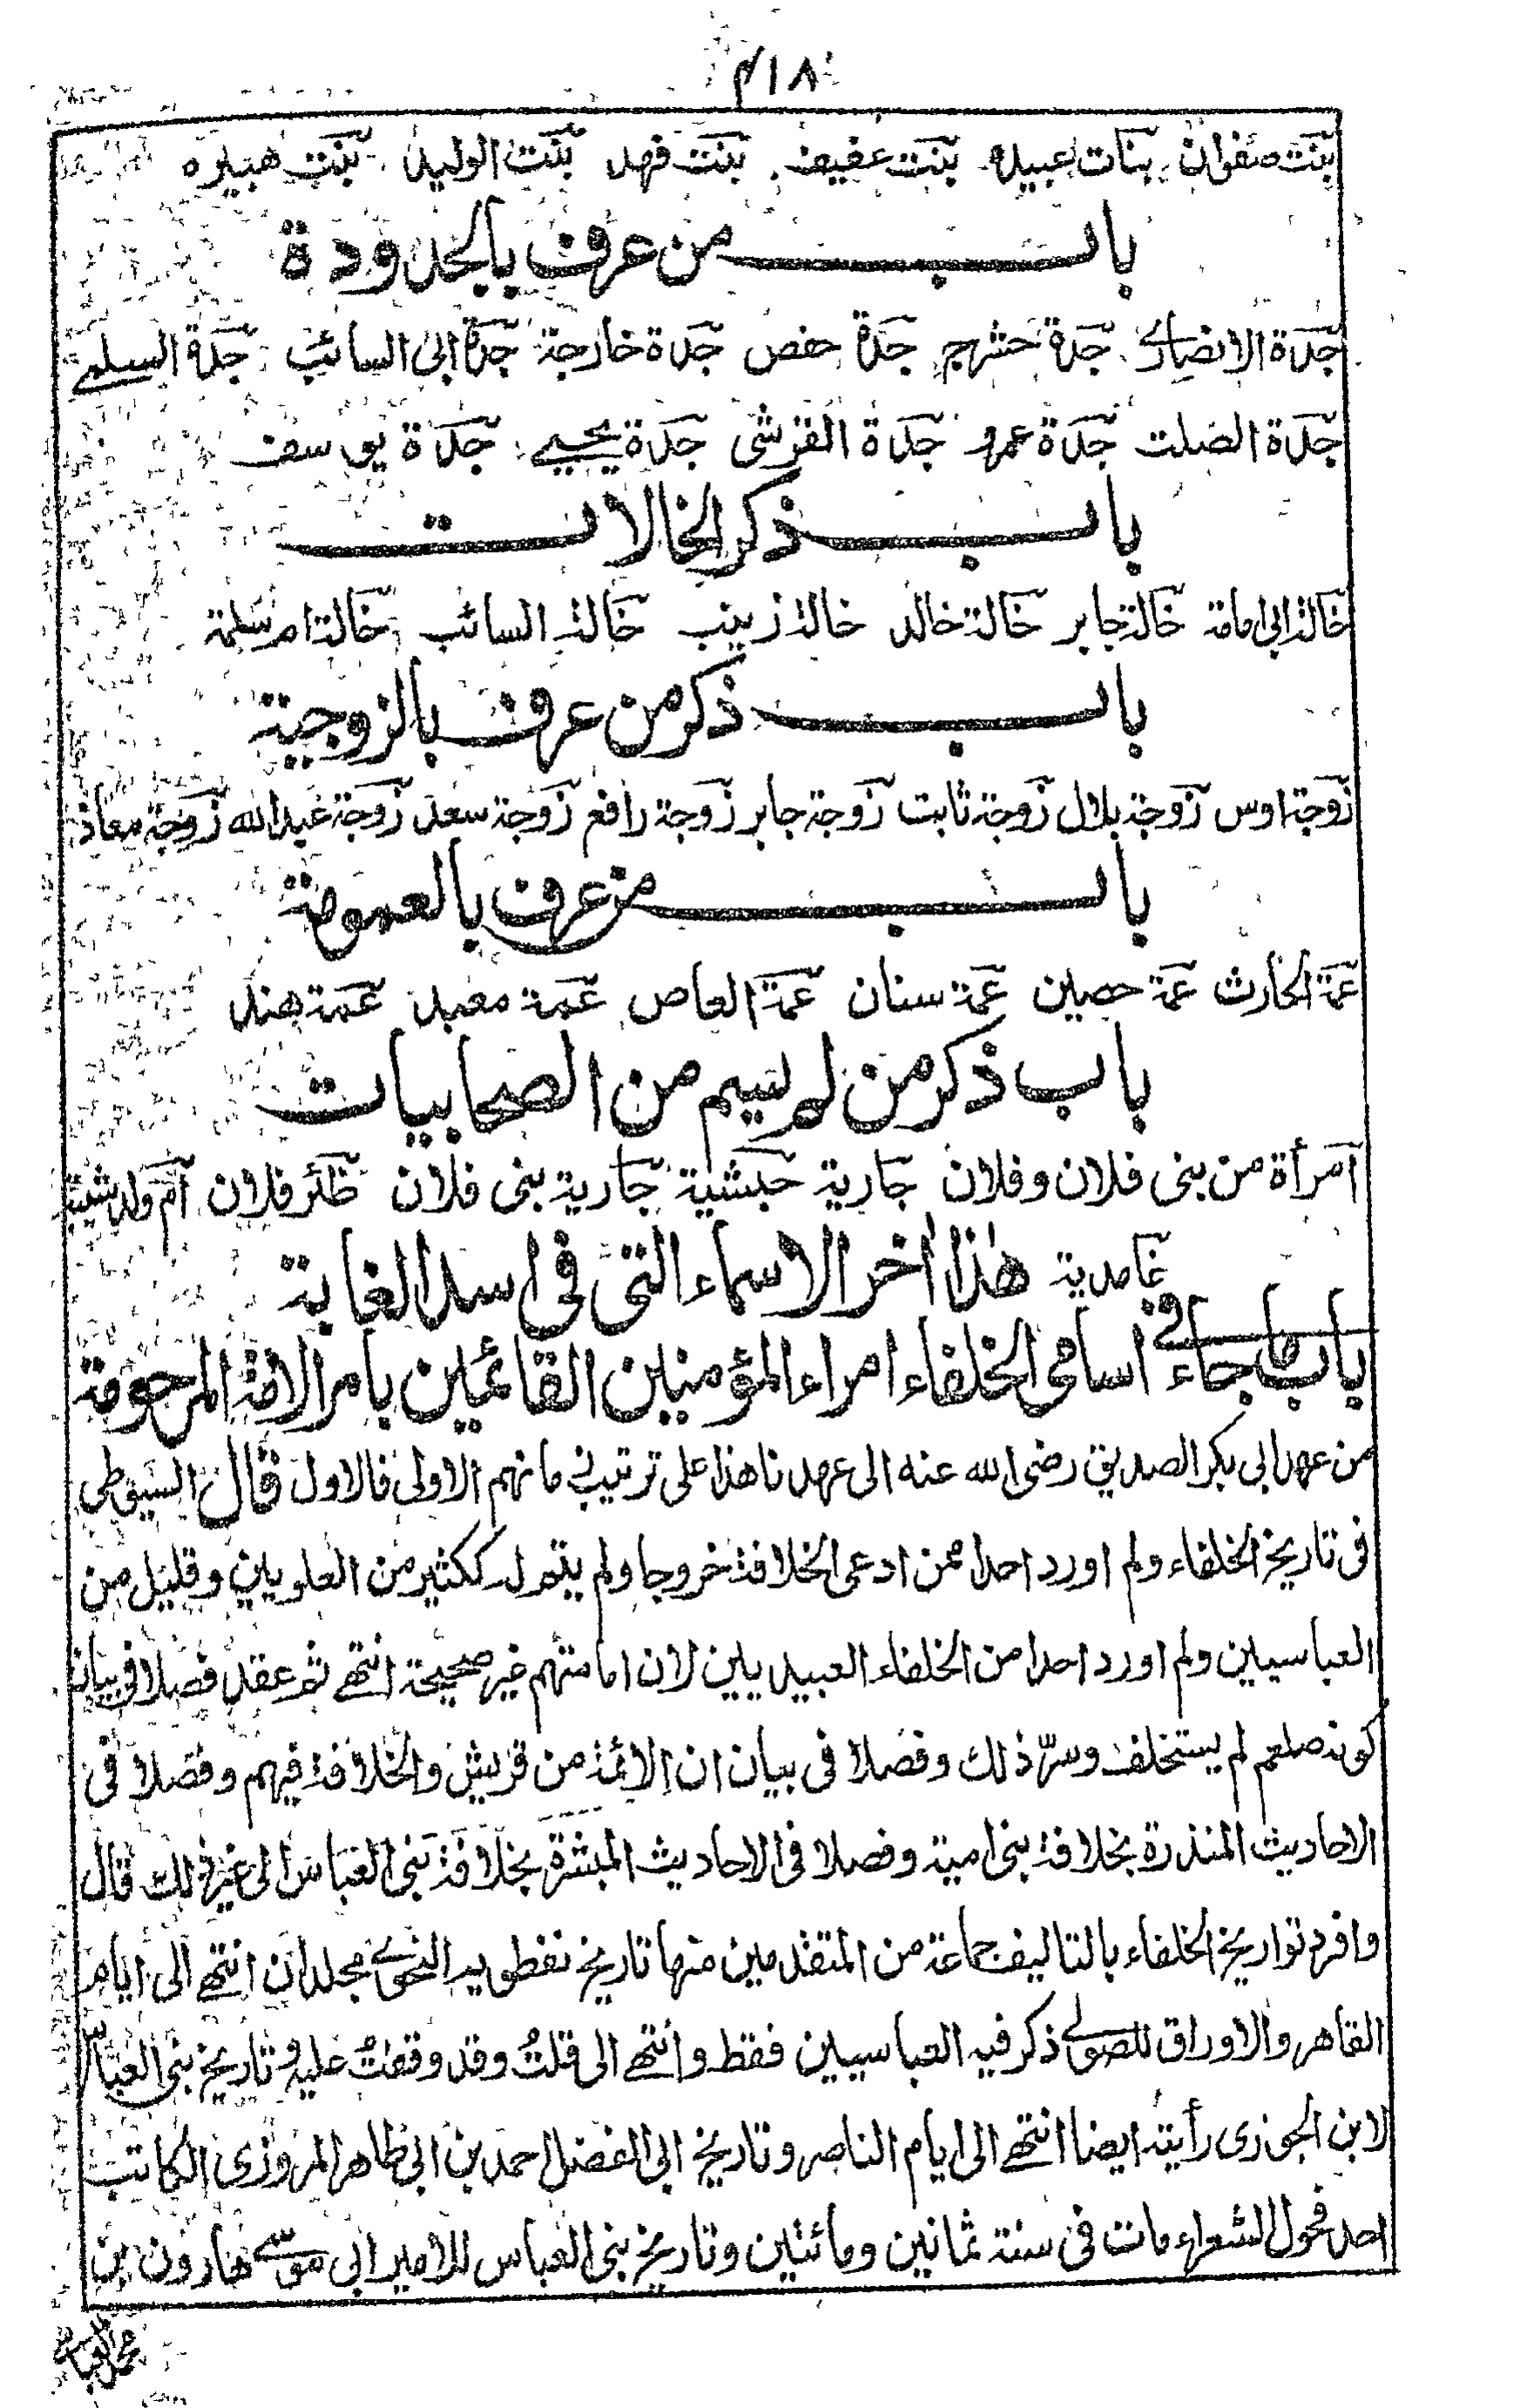 ٤١٨
بنت صفوان بنات عبيدة بنت عفيف بنت فهد بنت الوليد بنت هبيرة
باب من عرف بالجدودة
جدة الانصاري جدة حشرج جدة حفص جدة خارجة جدة ابي السائب جدة السلمي
جدة الصلت جدة عمرو جدة القرشى جدة يحيى جدة يوسف
باب ذكر الخالات
خالة ابي امامة خالة جابر خالة خالد خالة زينب خالة السائب خالة ام سلمة
باب ذكر من عرف بالزوجية
زوجة اوس زوجة بلال زوجة ثابت زوجة جابر زوجة رافع زوجة سعد زوجة عبد الله زوجة معاذ
باب من عرف بالعمومة
عمة الحارث عمة حصين عمة سنان عمة العاص عمة معبد عمة هند
باب ذكر من لم يسم من الصحابيات
امرأة من بنى فلان وفلان جارية حبشية جارية بنى فلان ظئر فلان ام ولد شيبة
غامدية هذا اخر الاسماء التى فى اسد الغابة
باب ما جاء في اسامى الخلفاء امراء المؤمنين القائمين بامر الامة المرحومة
من عهد ابى بكر الصديق رضى الله عنه الى عهدنا هذا على ترتيب زمانهم الاولى فالاول قال السيوطى
فى تاريخ الخلفاء ولم اورد احدا ممن ادعى الخلافة خروجا ولم يتم له ككثير من العلويين وقليل من
العباسيين ولم اورد احدا من الخلفاء العبيديين لان امامتهم غير صحيحة انتهى ثم عقد فصلا فى بيان
كونه صلعم لم يستخلف وسرّ ذلك وفصلا فى بيان ان الائمة من قريش والخلافة فيهم وفصلا فى
الاحاديث المنذرة بخلافة بنى امية وفصلا فى الاحاديث المبشرة بخلافة بنى العباس الى غير ذلك قال
وافرد تواريخ الخلفاء بالتاليف جماعة من المتقدمين منها تاريخ نفطويه النحوى مجلدان انتهى الى ايام
القاهر والاوراق للصولى ذكر فيه العباسيين فقط وانتهى الى قلتُ وقد وقفتُ عليه وتاريخ بنى العباس
لابن الجوزى رأيته ايضا انتهى الى ايام الناصر وتاريخ ابى الفضل احمد بن ابى طاهر المروزى الكاتب
احد فحول الشعراء مات فى سنة ثمانين ومائتين وتاريخ بنى العباس للامير ابى موسى هارون بن
محمد العباسى